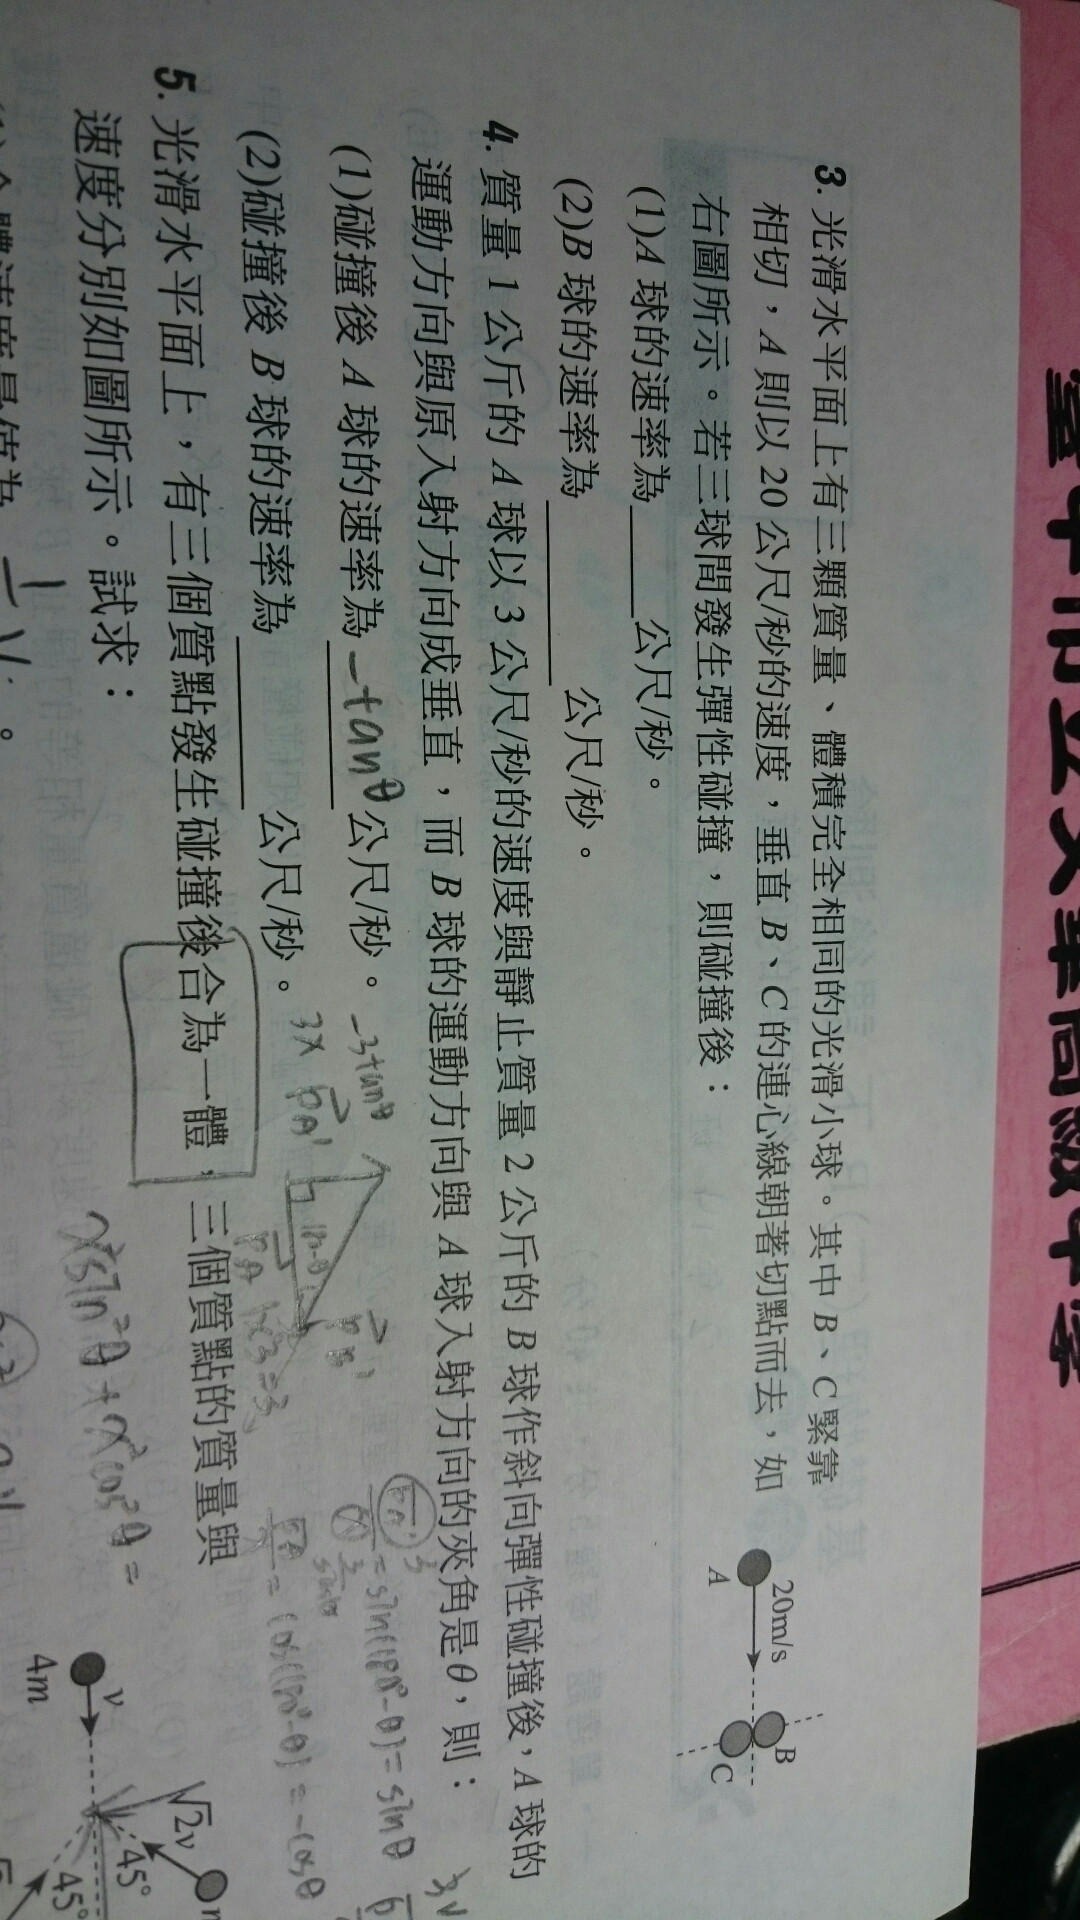 臺中市立文華高級中學
3. 光滑水平面上有三顆質量、體積完全相同的光滑小球。其中 B、C 緊靠
相切，A 則以 20 公尺/秒的速度，垂直 B、C 的連心線朝著切點而去，如
右圖所示。若三球間發生彈性碰撞，則碰撞後：
(1)A 球的速率為 公尺/秒。
(2)B 球的速率為 公尺/秒。
20m/s
A
B
C
4. 質量 1 公斤的 A 球以 3 公尺/秒的速度與靜止質量 2 公斤的 B 球作斜向彈性碰撞後，A 球的
運動方向與原入射方向成垂直，而 B 球的運動方向與 A 球入射方向的夾角是θ，則：
(1)碰撞後 A 球的速率為 -tanθ 公尺/秒。 -3tanθ
(2)碰撞後 B 球的速率為 公尺/秒。
3x PA'
= sin(180°-θ) = sinθ
= cos(180°-θ) = -cosθ
5. 光滑水平面上，有三個質點發生碰撞後合為一體，三個質點的質量與
速度分別如圖所示。試求：
x²sin²θ + x²cos²θ =
v
4m
√2v
45°
45°